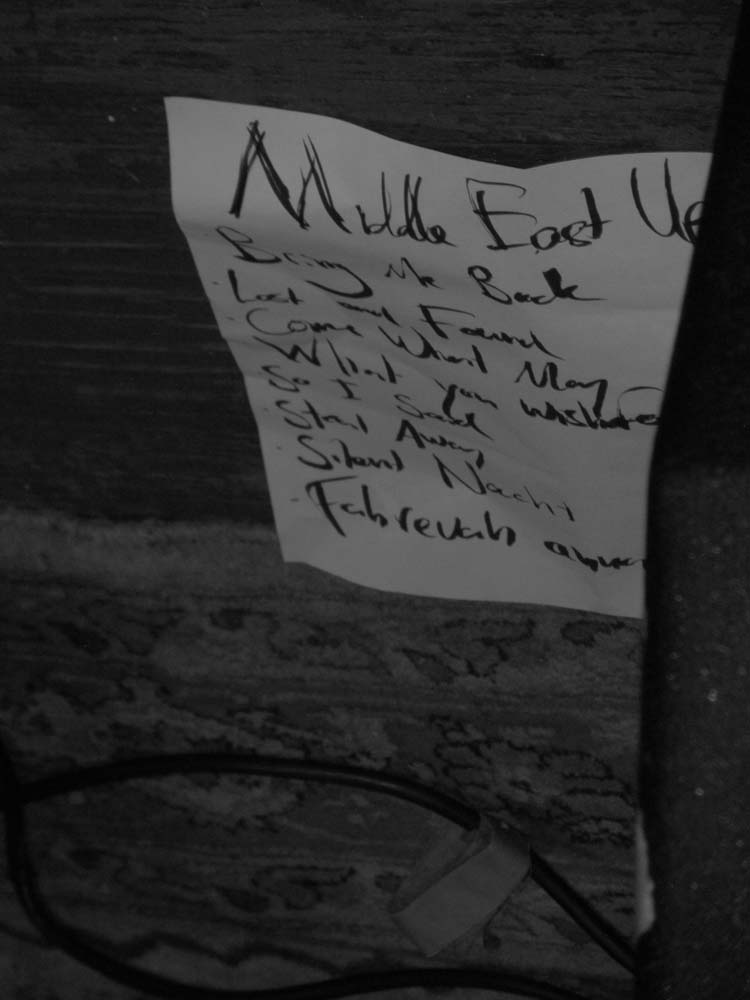 Middle East Up
Bring Me Back
Lost and Found
Come What May
What you
So I Said
Steal Away
Silent Nacht
Fahrevah